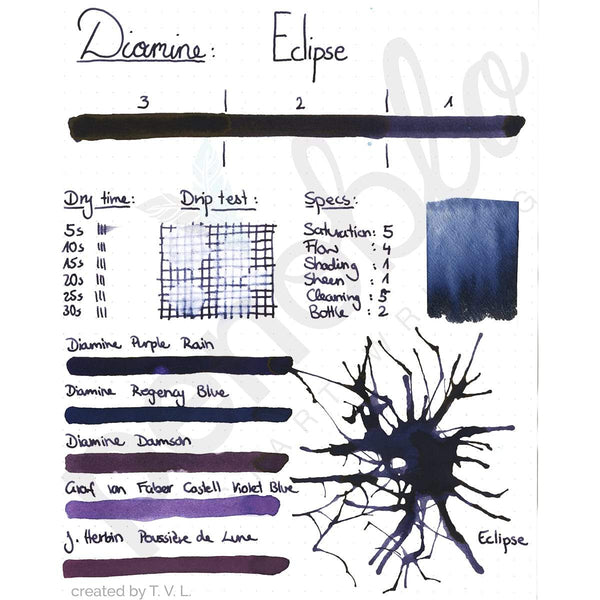 Diamine: Eclipse
3 2 1
Dry time:
5s
10s
15s
20s
25s
30s
Drip test:
Specs:
Saturation: 5
Flow : 4
Shading : 1
Sheen : 1
Cleaning : 5
Bottle : 2
Diamine Purple Rain
Diamine Regency Blue
Diamine Damson
Graf von Faber Castell Violet Blue
J. Herbin Poussière de Lune
Eclipse
created by T. V. L.